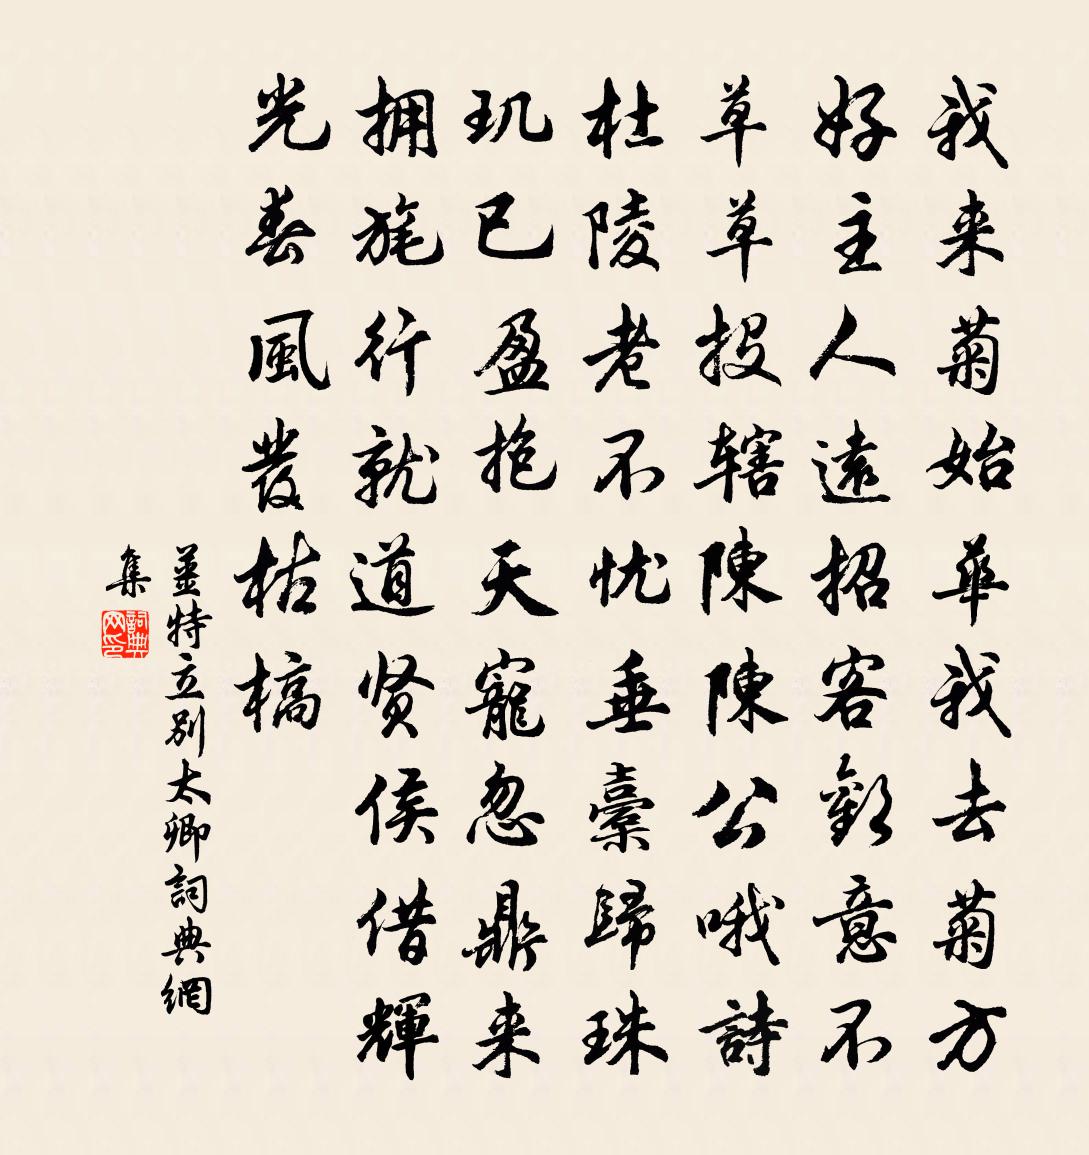 我来菊始華我去菊方
好主人遠招客歡意不
草草投辖陳陳公哦詩
杜陵老不忧垂橐歸珠
玑已盈抱天寵忽鼎来
拥旄行就道贤侯借輝
光春風發枯槁
姜特立别太卿詞典網
集
詞典网印